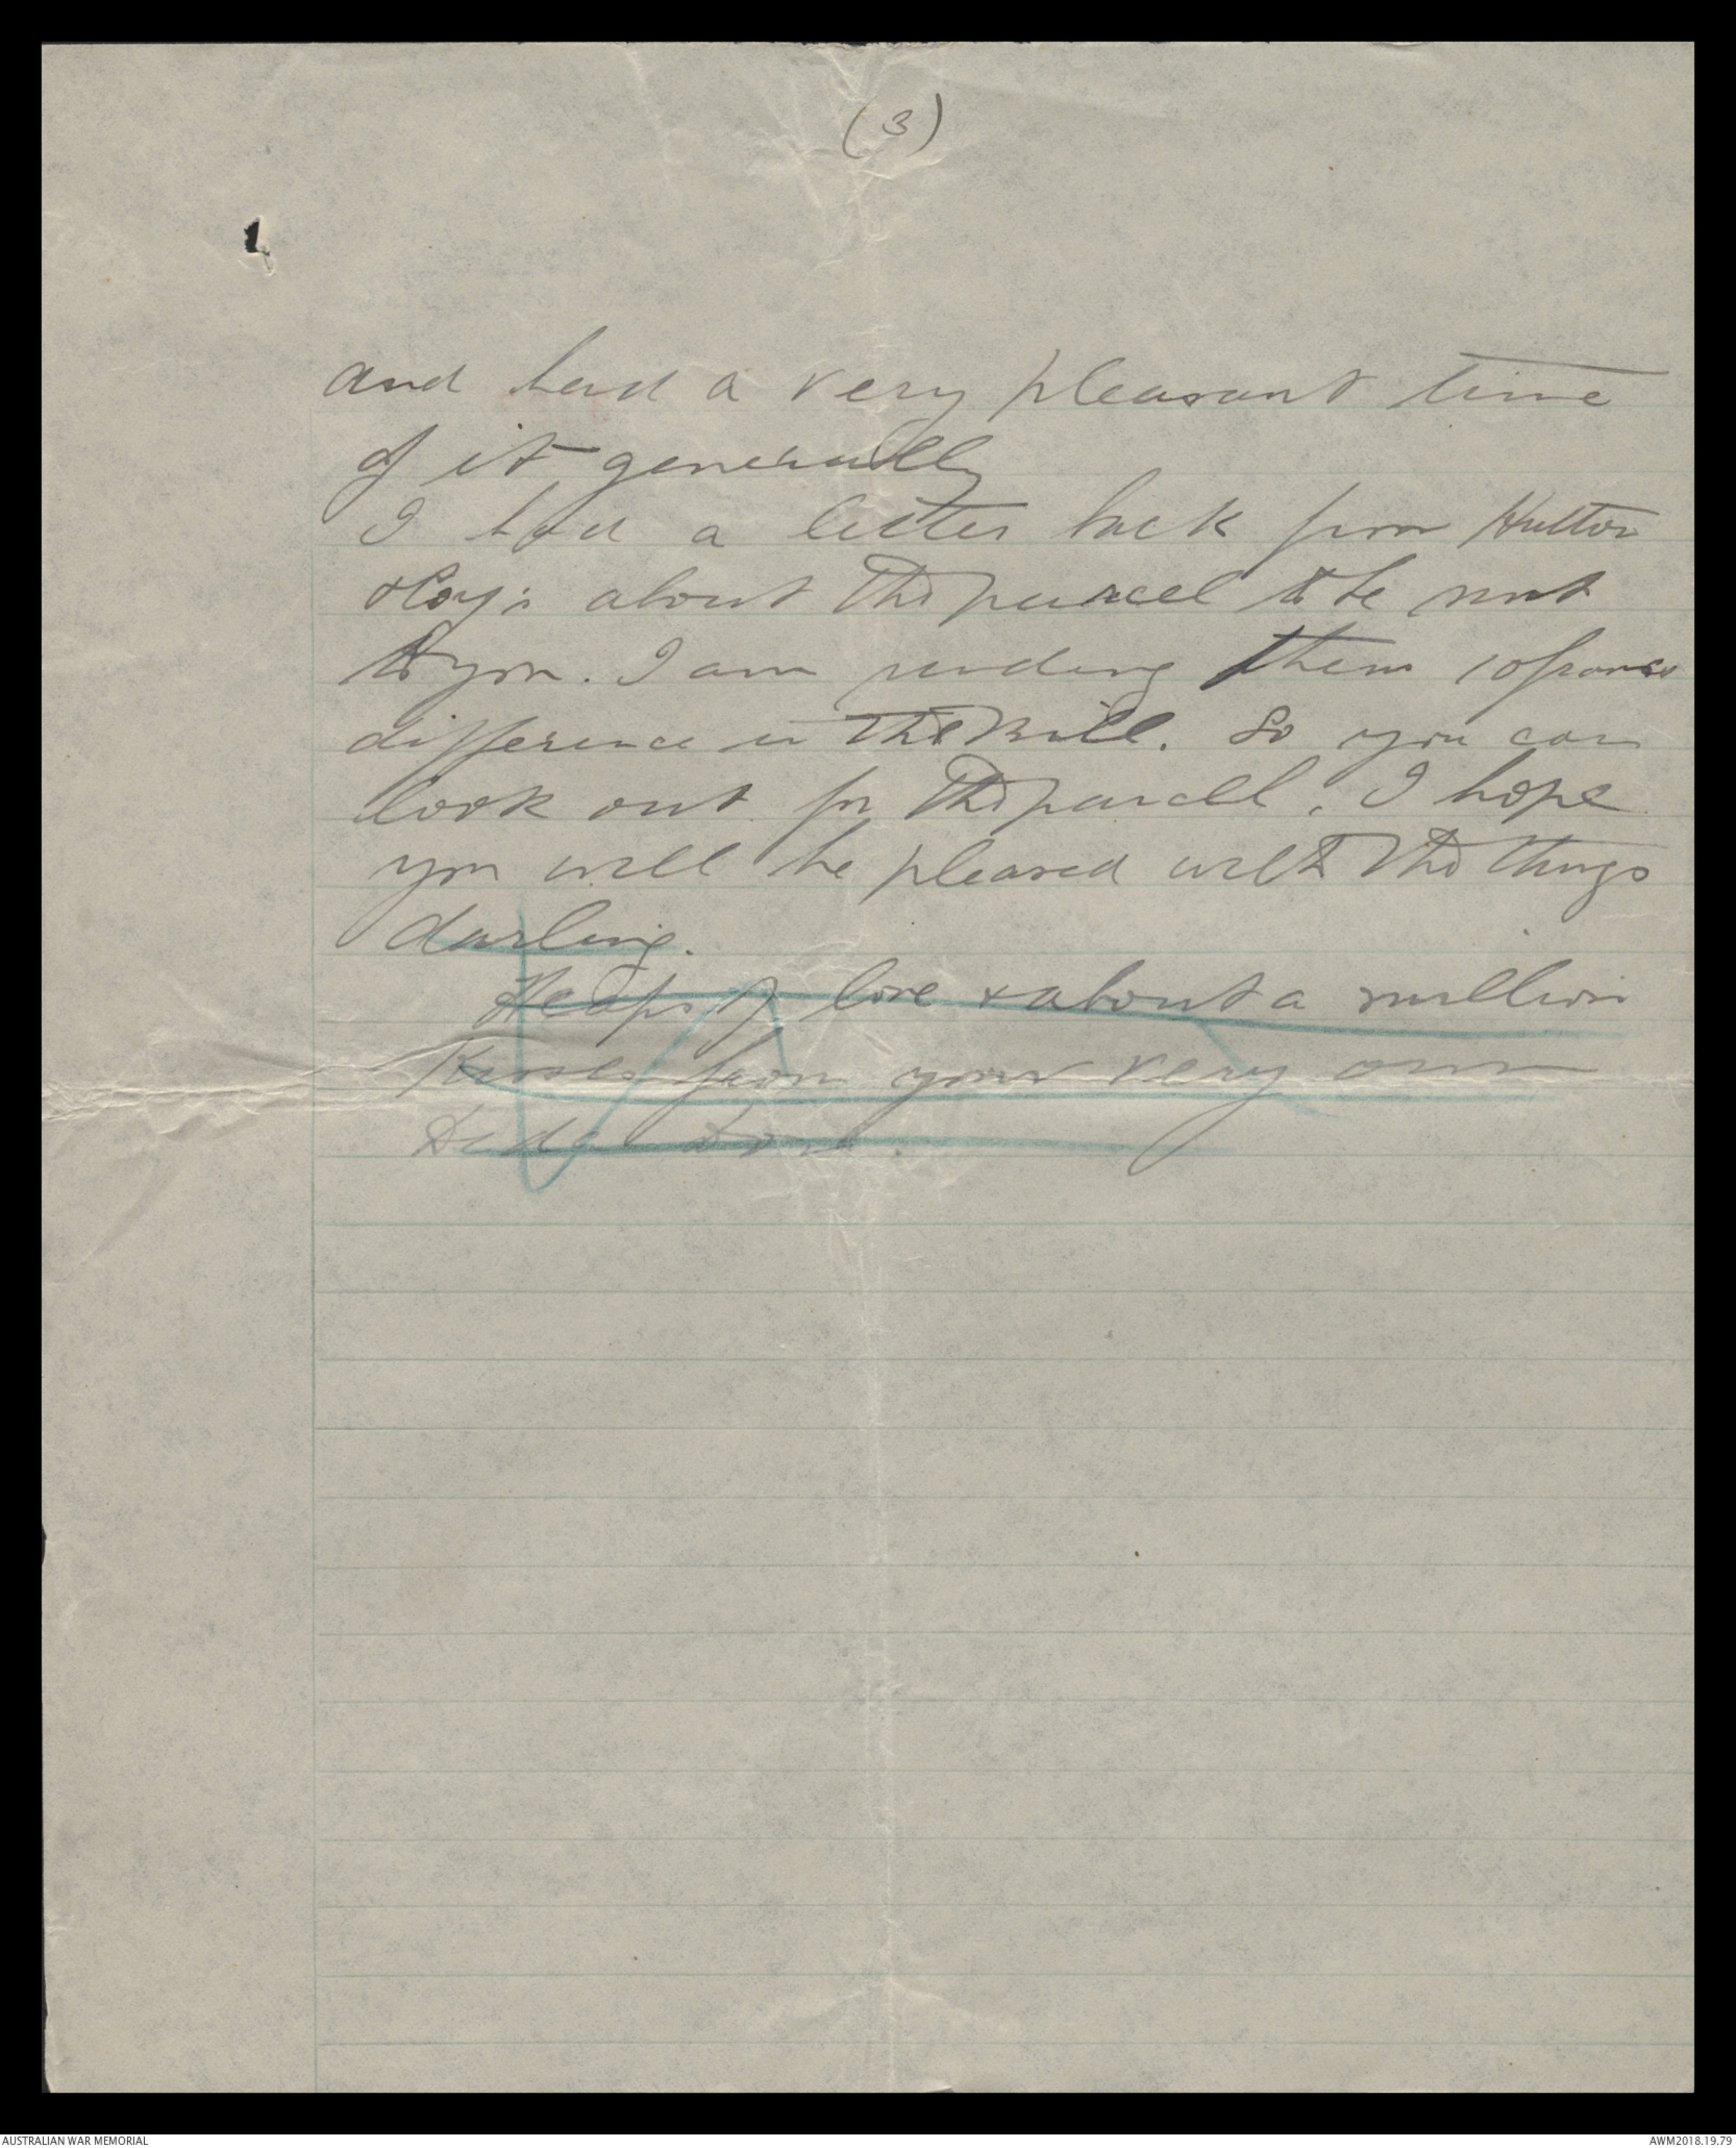 (3)
and had a very pleasant time
of it generally
I had a letter back from Hutton
about the parcel to be sent
to you. I am sending them 10 francs
difference in the bill. So you can
look out for the parcel. I hope
you will be pleased with the things
darling.
Heaps of love & about a million
kisses from your very own
AUSTRALIAN WAR MEMORIAL
AWM2018.19.79